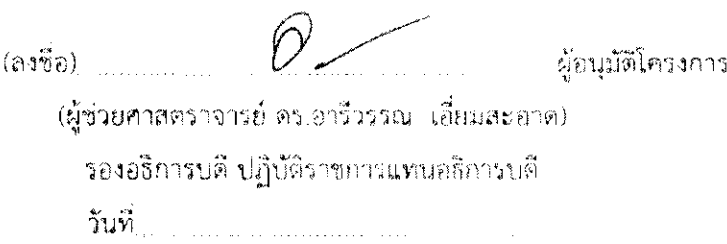 (ลงชื่อ)........................................ผู้อนุมัติโครงการ
(ผู้ช่วยศาสตราจารย์ ดร.อารีวรรณ เอี่ยมสะอาด)
รองอธิการบดี ปฏิบัติราชการแทนอธิการบดี
วันที่........................................